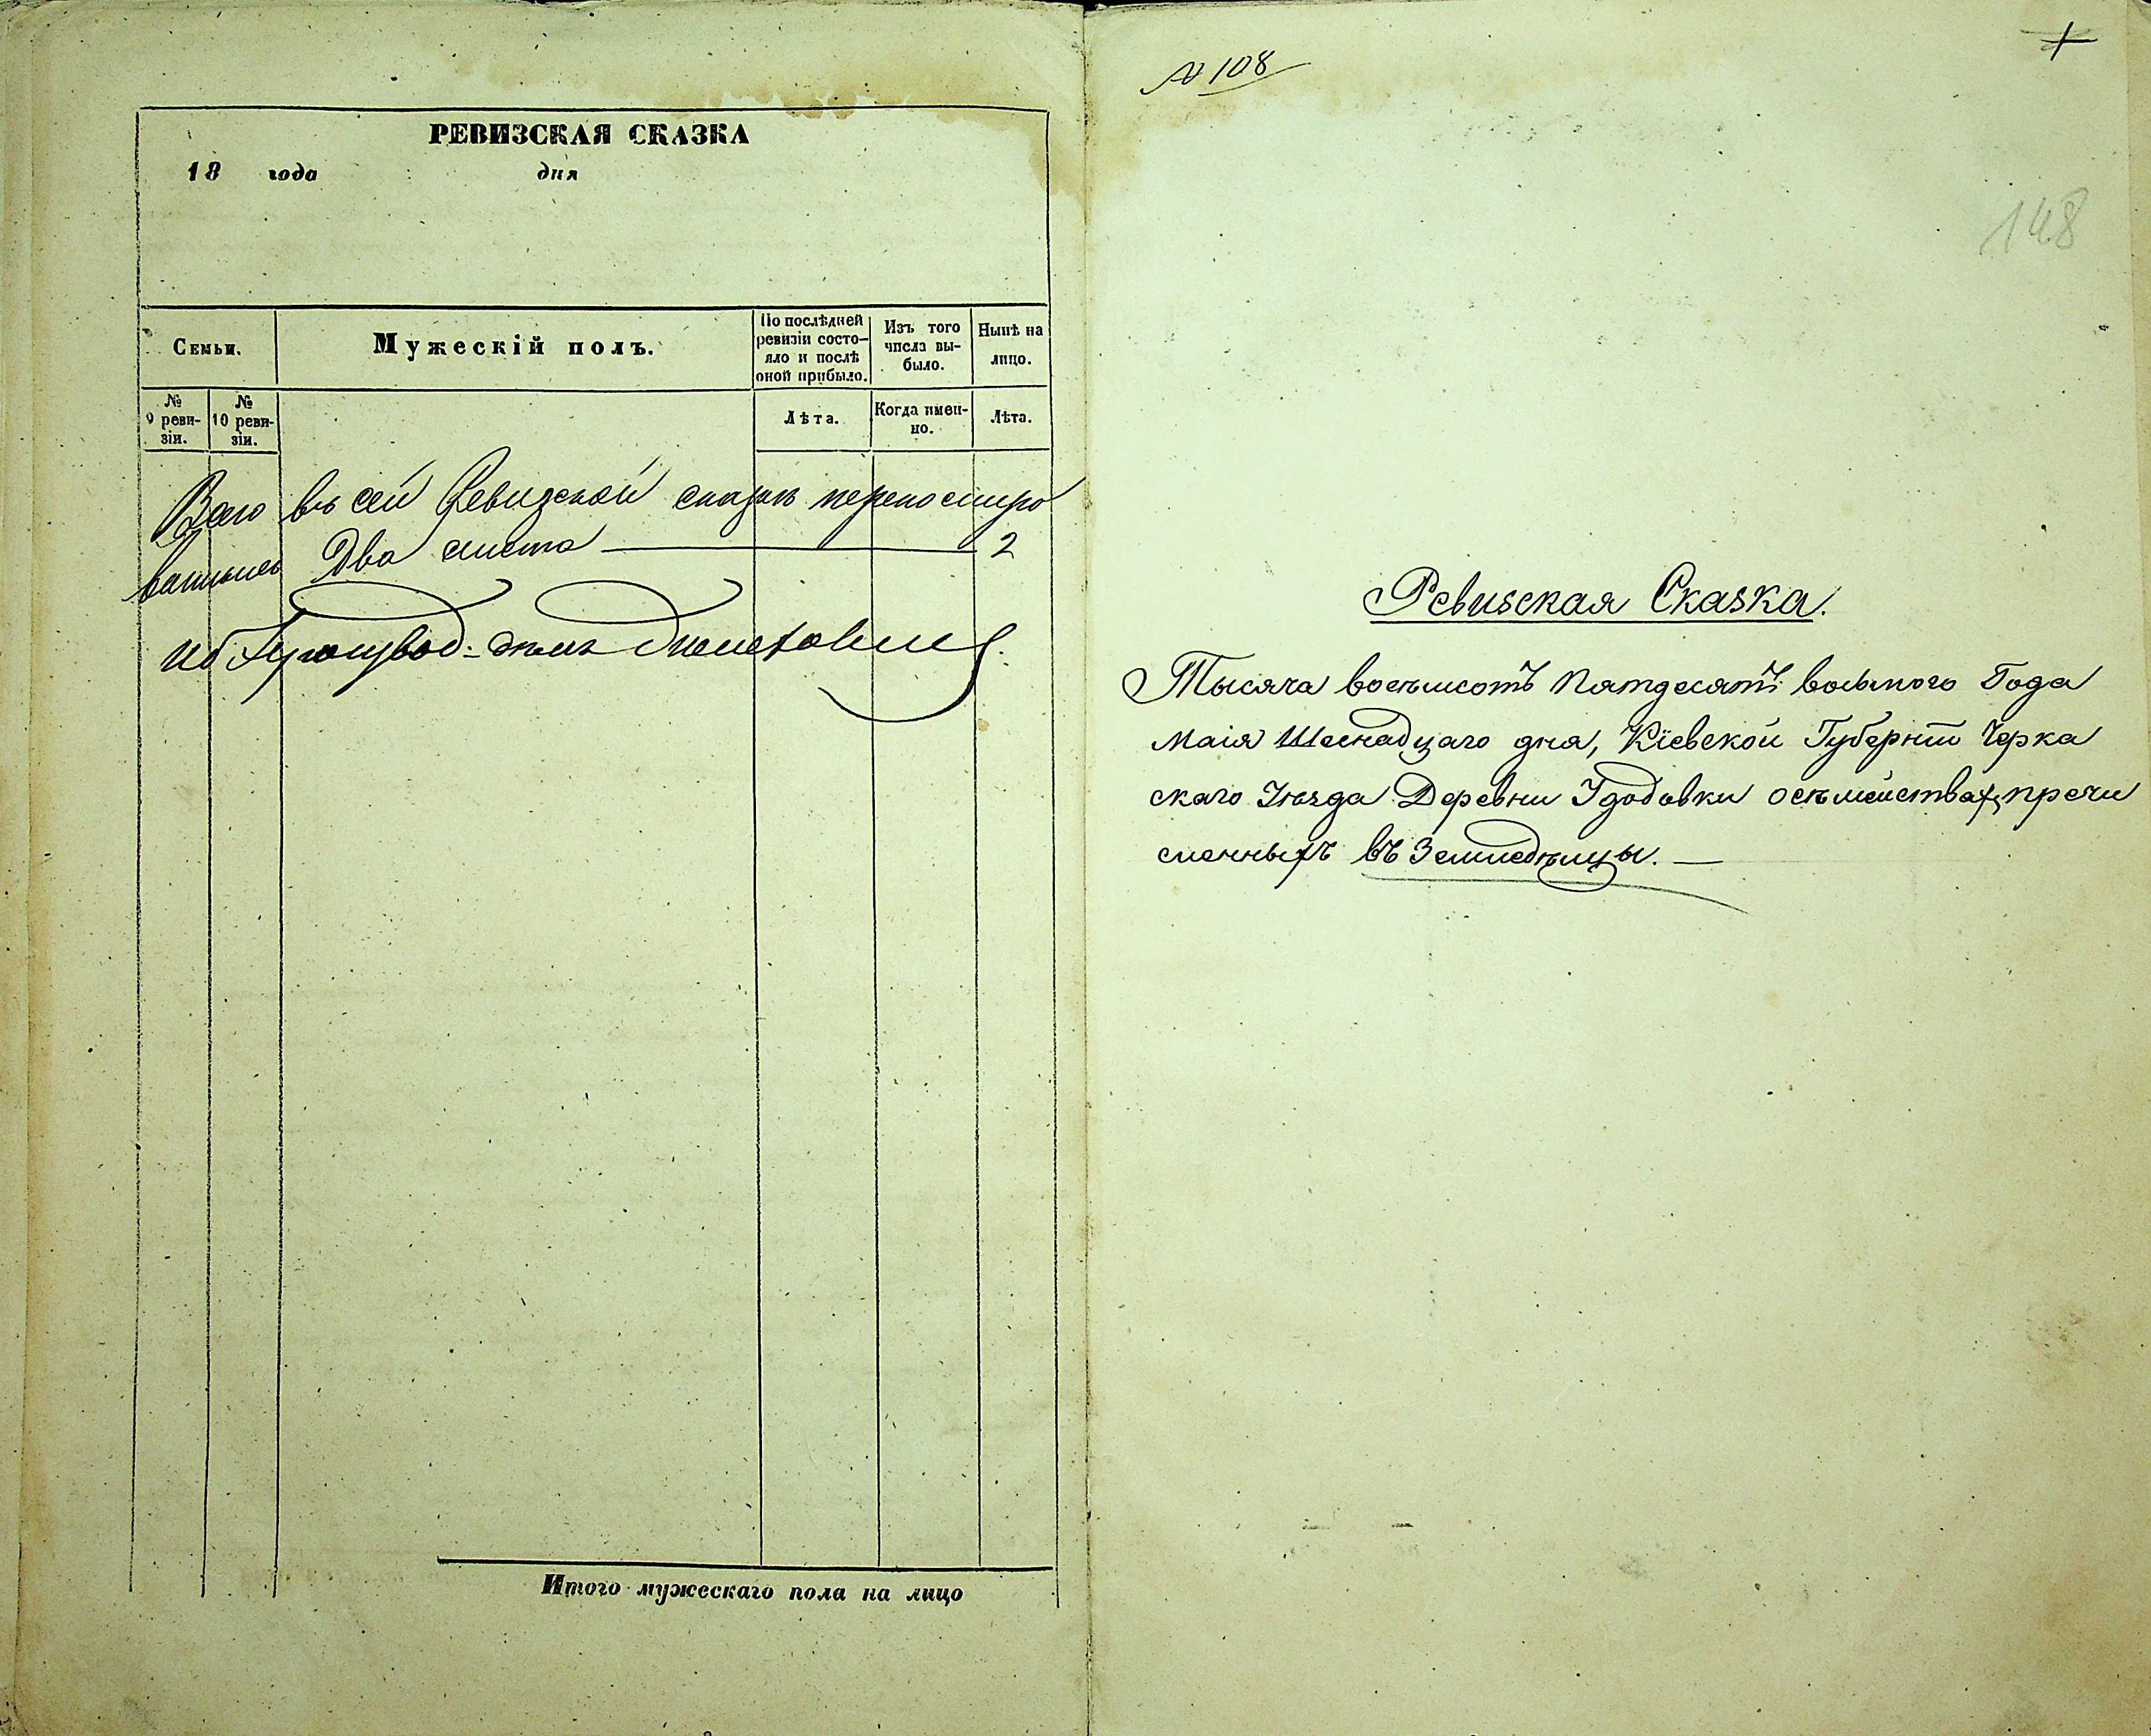 РЕВИЗСКАЯ СКАЗКА
18 года дня
Семьи.
Мужескій полъ.
По послѣдней ревизіи состо-
яло и послѣ
оной прибыло.
Изъ того
числа вы-
было.
Нынѣ на
лицо.
№
9 реви-
зіи.
№
10 реви-
зіи.
Лѣта.
Когда имен-
но.
Лѣта.
Всего въ сей Ревизской сказкѣ
Два листа 2
Итого мужескаго пола на лицо
№ 108
148
Ревизская Сказка.
Тысяча восемсотъ Пятдесятъ восьмого Года
Маія Шеснадцаго дня, Кіевской Губерніи Черка
скаго Уѣзда Деревни Удобовки осѣмействахъ причи
сленныхъ въ Земледѣлцы.